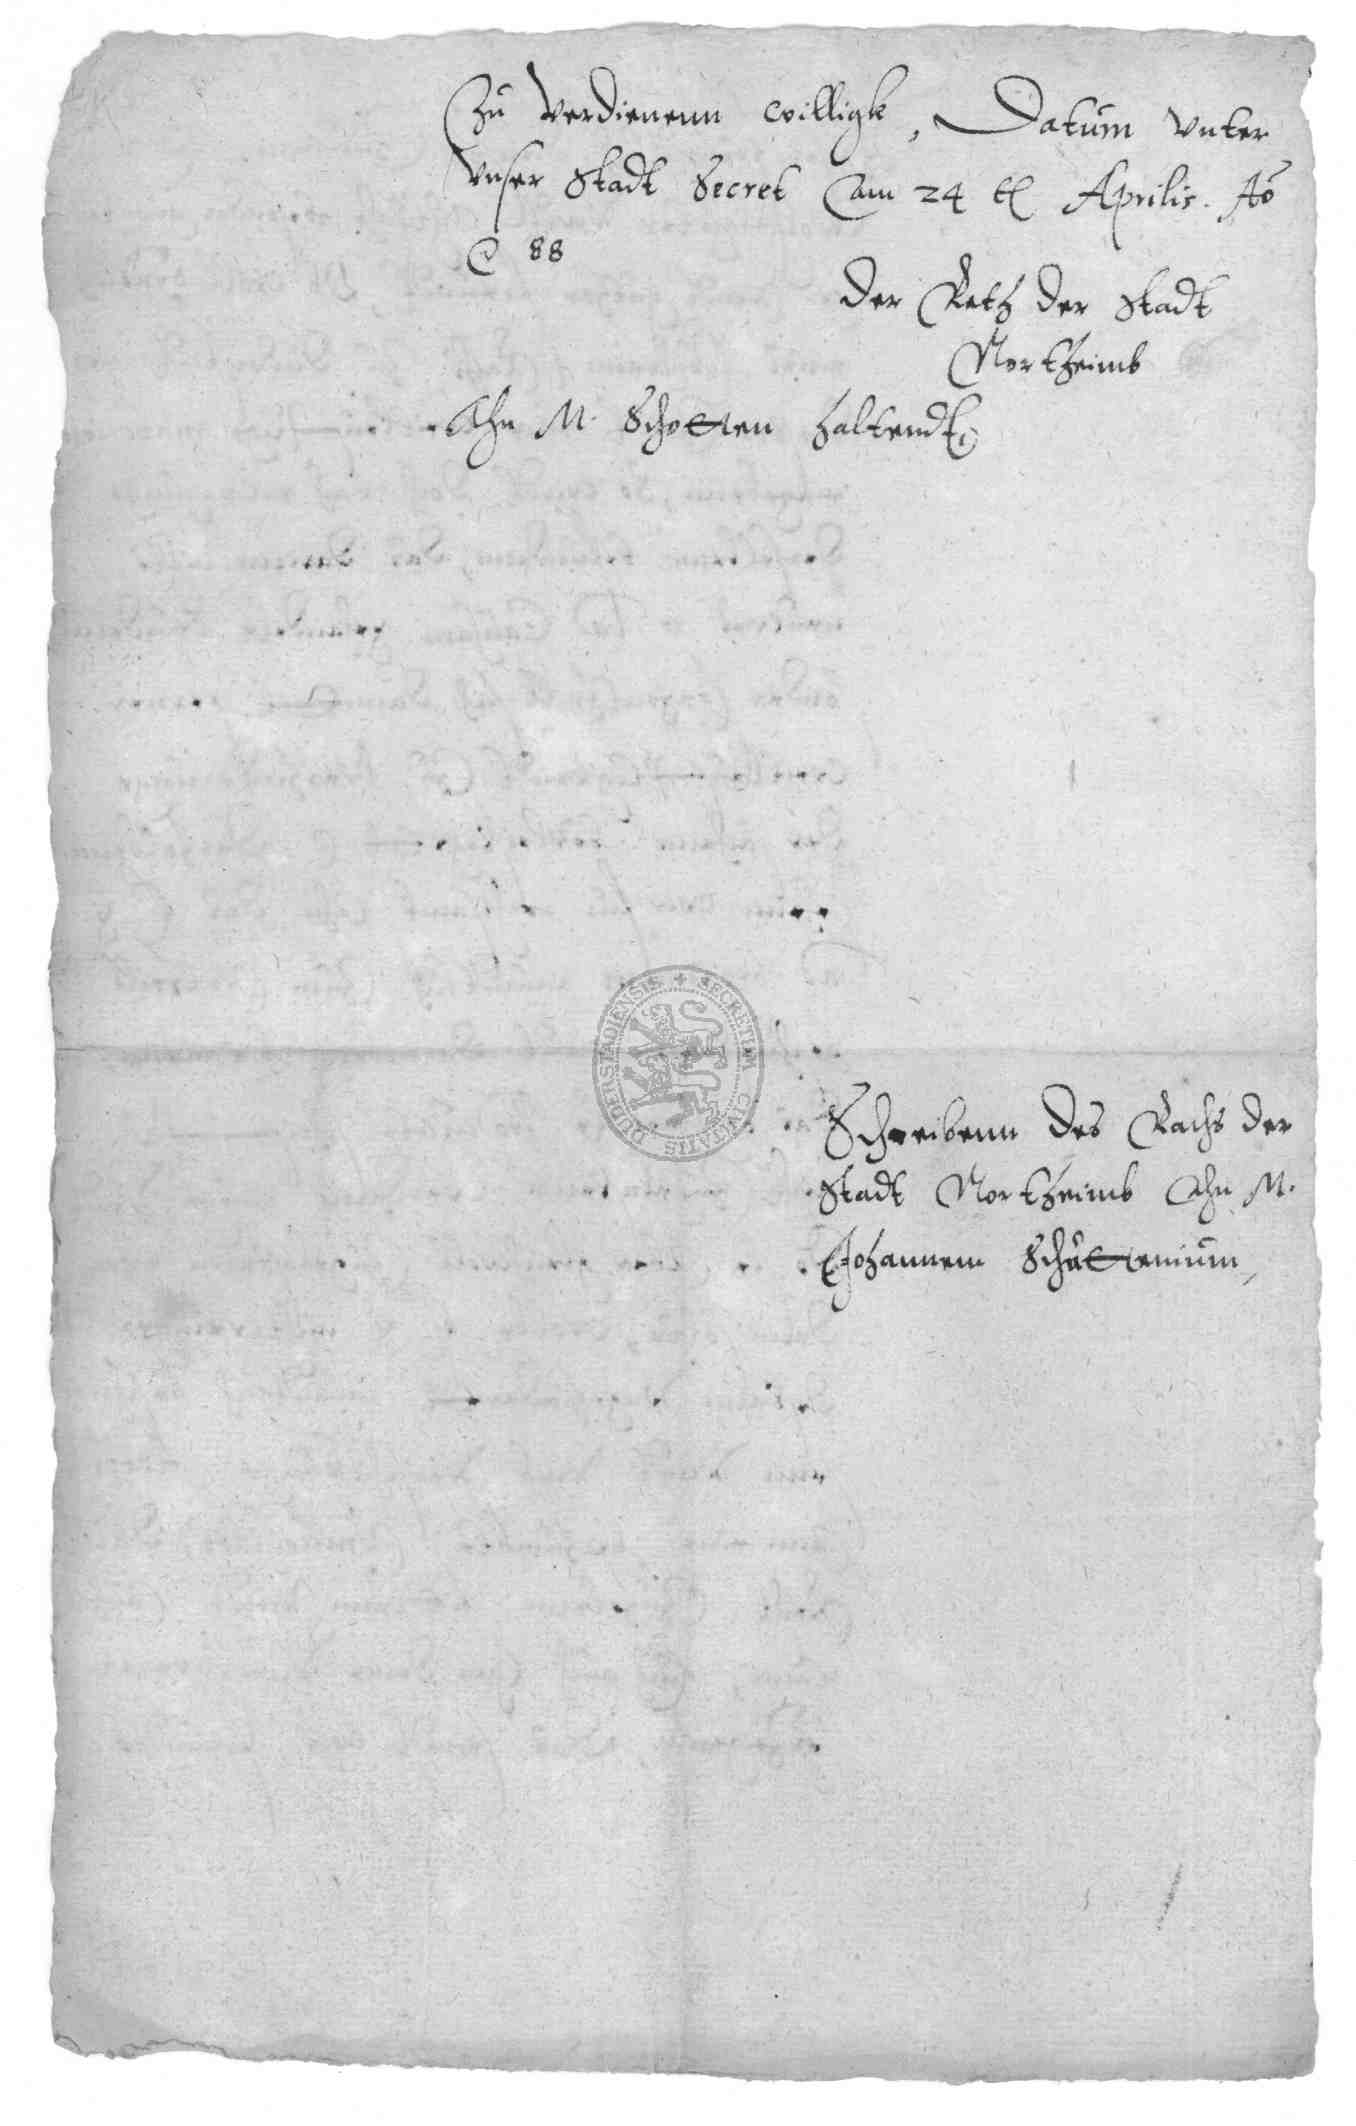 Zu verdienenn willigk, Datum vnter
vnser Stadt Secret am 24 t Aprilis. Ao
88
Der Reth der Stadt
Northeimb
Ahn M. Schotten haltendt
SECRETUM CIVITATIS DUDERSTADIENSIS
Schreibenn des Rachs der
Stadt Northeimb Ahn M.
Johannem Schuttenium